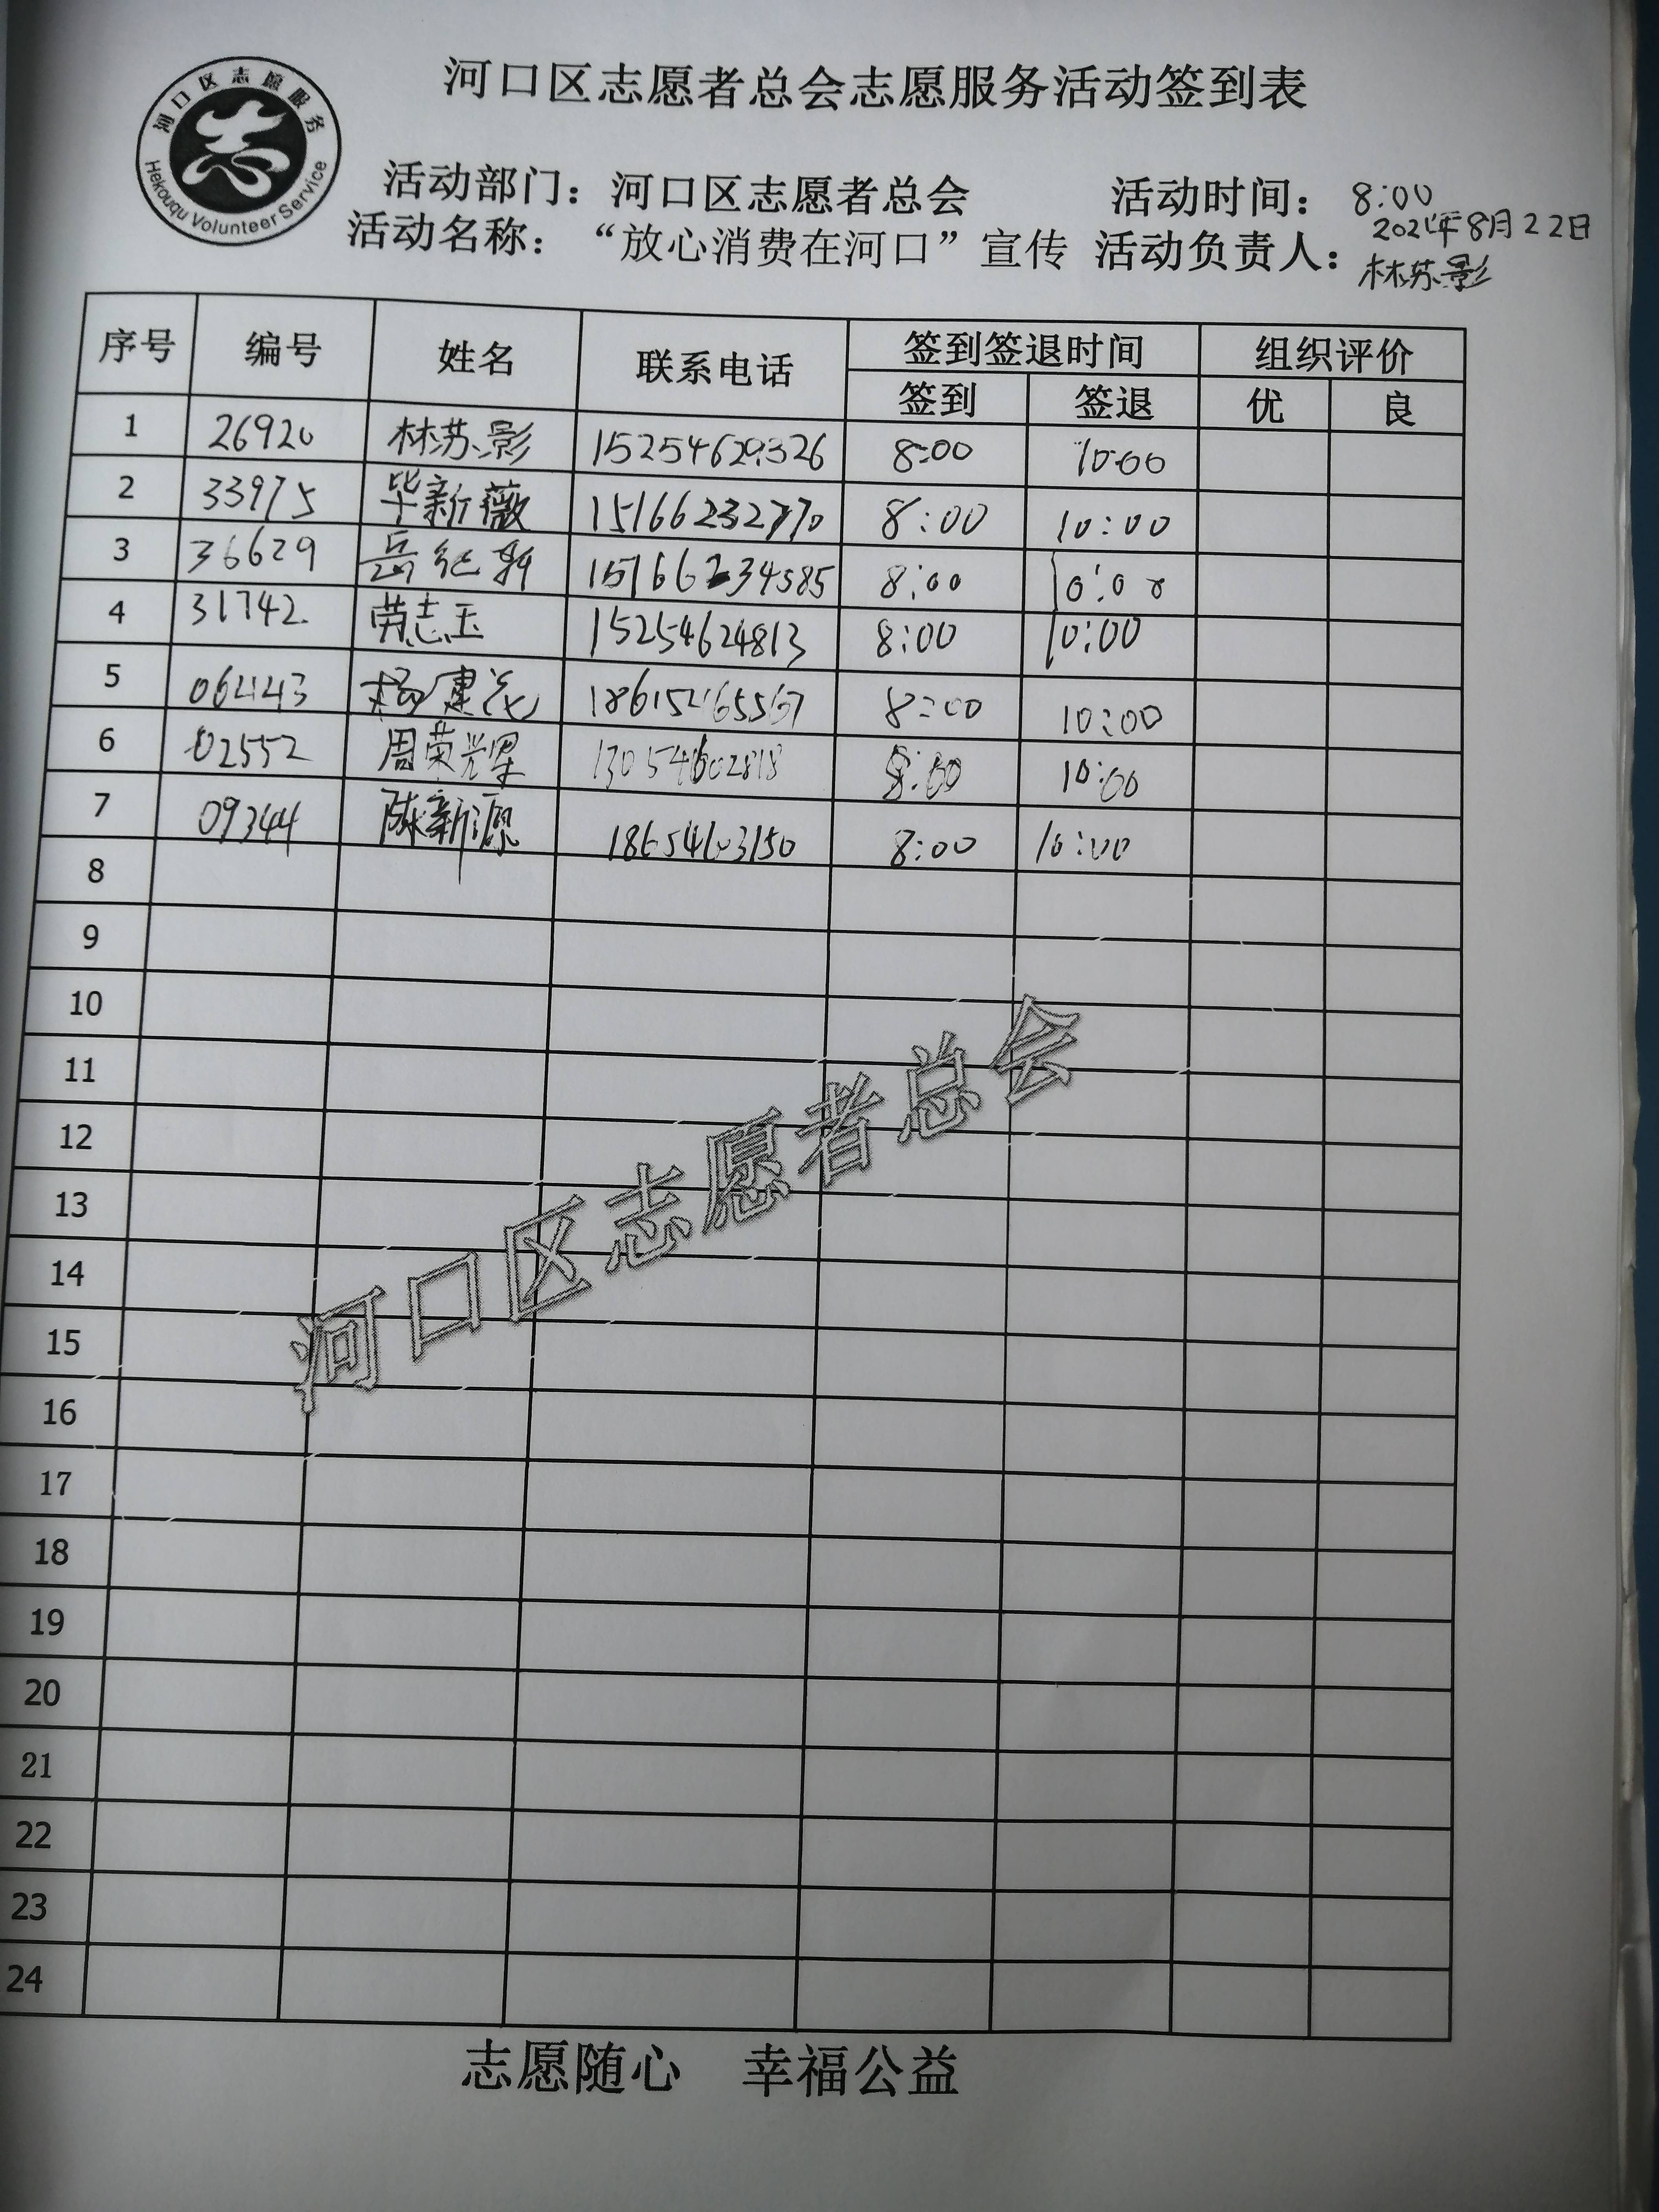 河口区志愿服务
Hekouqu Volunteer Service
河口区志愿者总会志愿服务活动签到表
活动部门：河口区志愿者总会 活动时间：8:00
2021年8月22日
活动名称：“放心消费在河口”宣传 活动负责人：林苏影
序号 编号 姓名 联系电话 签到签退时间 组织评价
签到 签退 优 良
1 26920 林苏影 15254629326 8:00 10:00
2 33975 毕新薇 15166232770 8:00 10:00
3 36629 岳纪新 15166234585 8:00 10:00
4 31742 劳志玉 15254624813 8:00 10:00
5 杨建 8:00 10:00
6 02552 周荣光 13054602818 8:00 10:00
7 09344 陈新源 18654603150 8:00 10:00
8
9
10
11
12
13
14
15
16
17
18
19
20
21
22
23
24
河口区志愿者总会
志愿随心 幸福公益